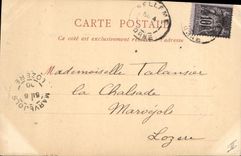 CARTE POSTALE
Ce côté est exclusivement réservé à l'adresse
Mademoiselle Talansier
la Chalsade
Marvéjols
Lozere
MARVEJOLS
LOZÈRE